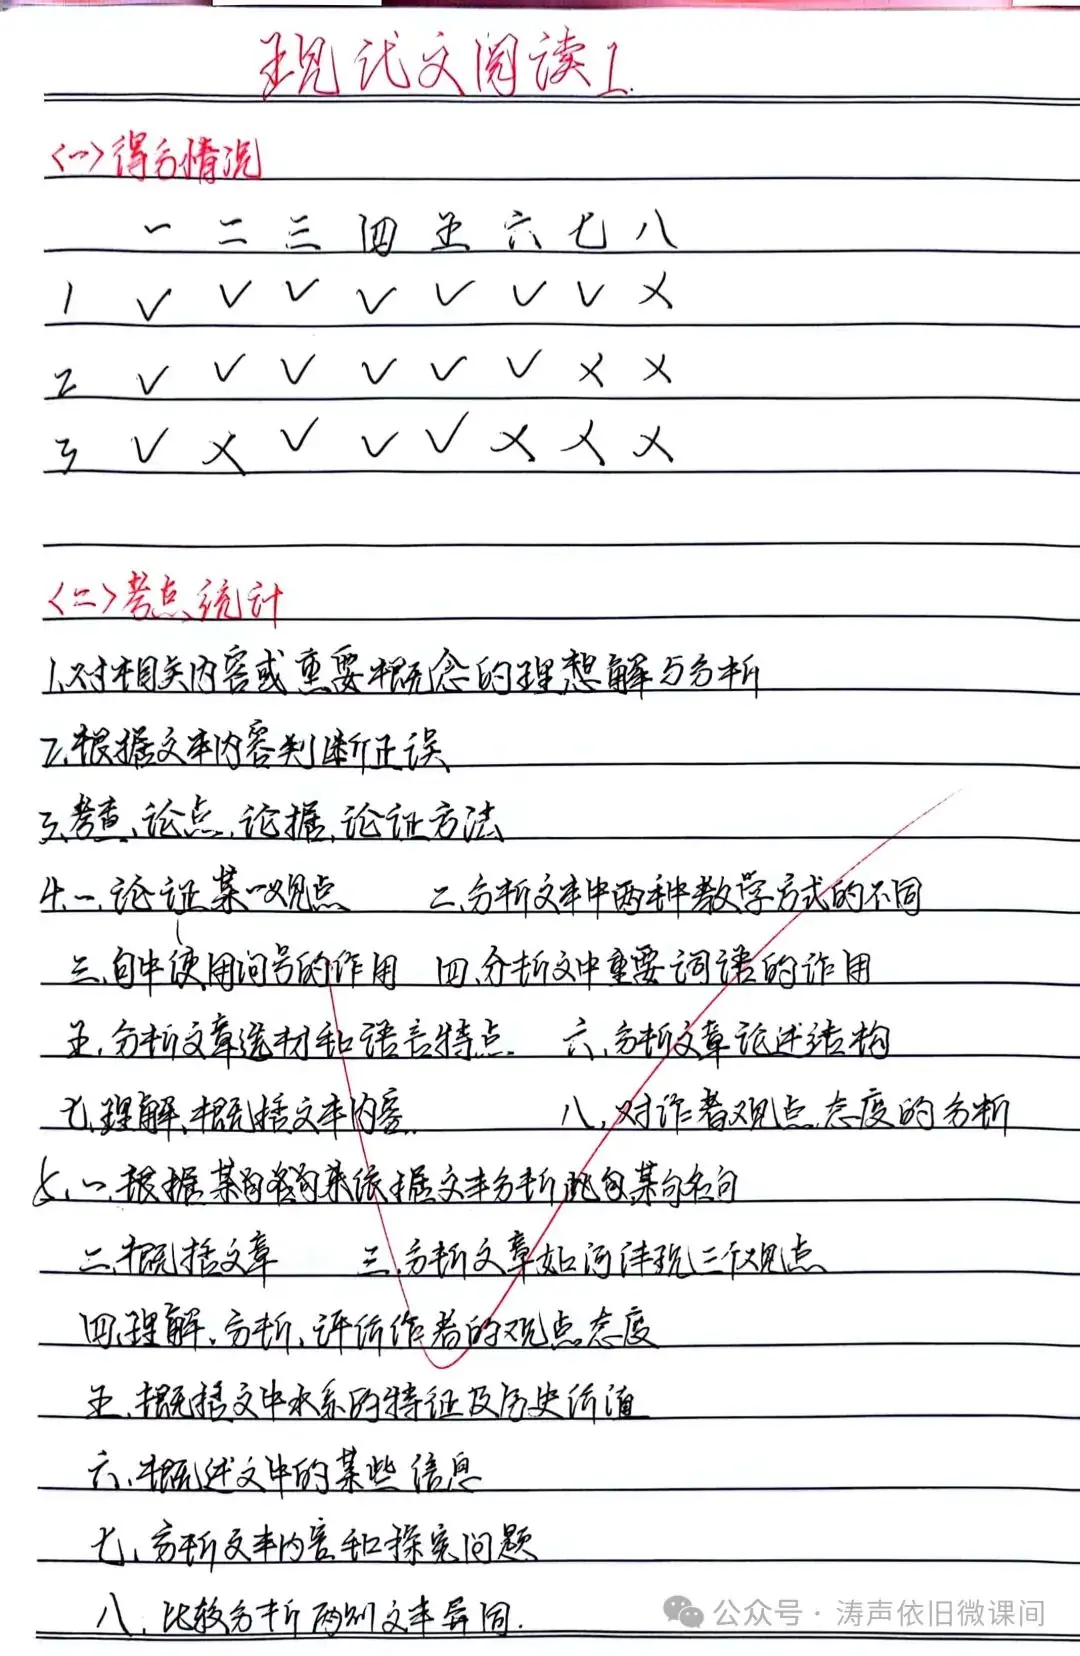 现代文阅读1.
<一>得分情况
一 二 三 四 五 六 七 八
1 √ √ √ √ √ √ √ ×
2 √ √ √ √ √ √ × ×
3 √ × √ √ √ × × ×
<二>考点统计
1.对相关内容或重要概念的理想解与分析
2.根据文本内容判断正误
3.考查、论点、论据、论证方法
4.一.论证某一观点 二.分析文本中两种教学方式的不同
三.句中使用问号的作用 四.分析文中重要词语的作用
五.分析文章选材和语言特点. 六.分析文章论述结构
七.理解、概括文本内容. 八.对作者观点态度的分析
5.一.根据某句 来依据文本分析此句某句名句
二.概括文章 三.分析文章如何体现三个观点
四.理解、分析、评价作者的观点态度
五.概括文中水系的特征及历史价值
六.概述文中的某些信息
七.分析文本内容和探究问题
八.比较分析两则文本异同.
公众号·涛声依旧微课间